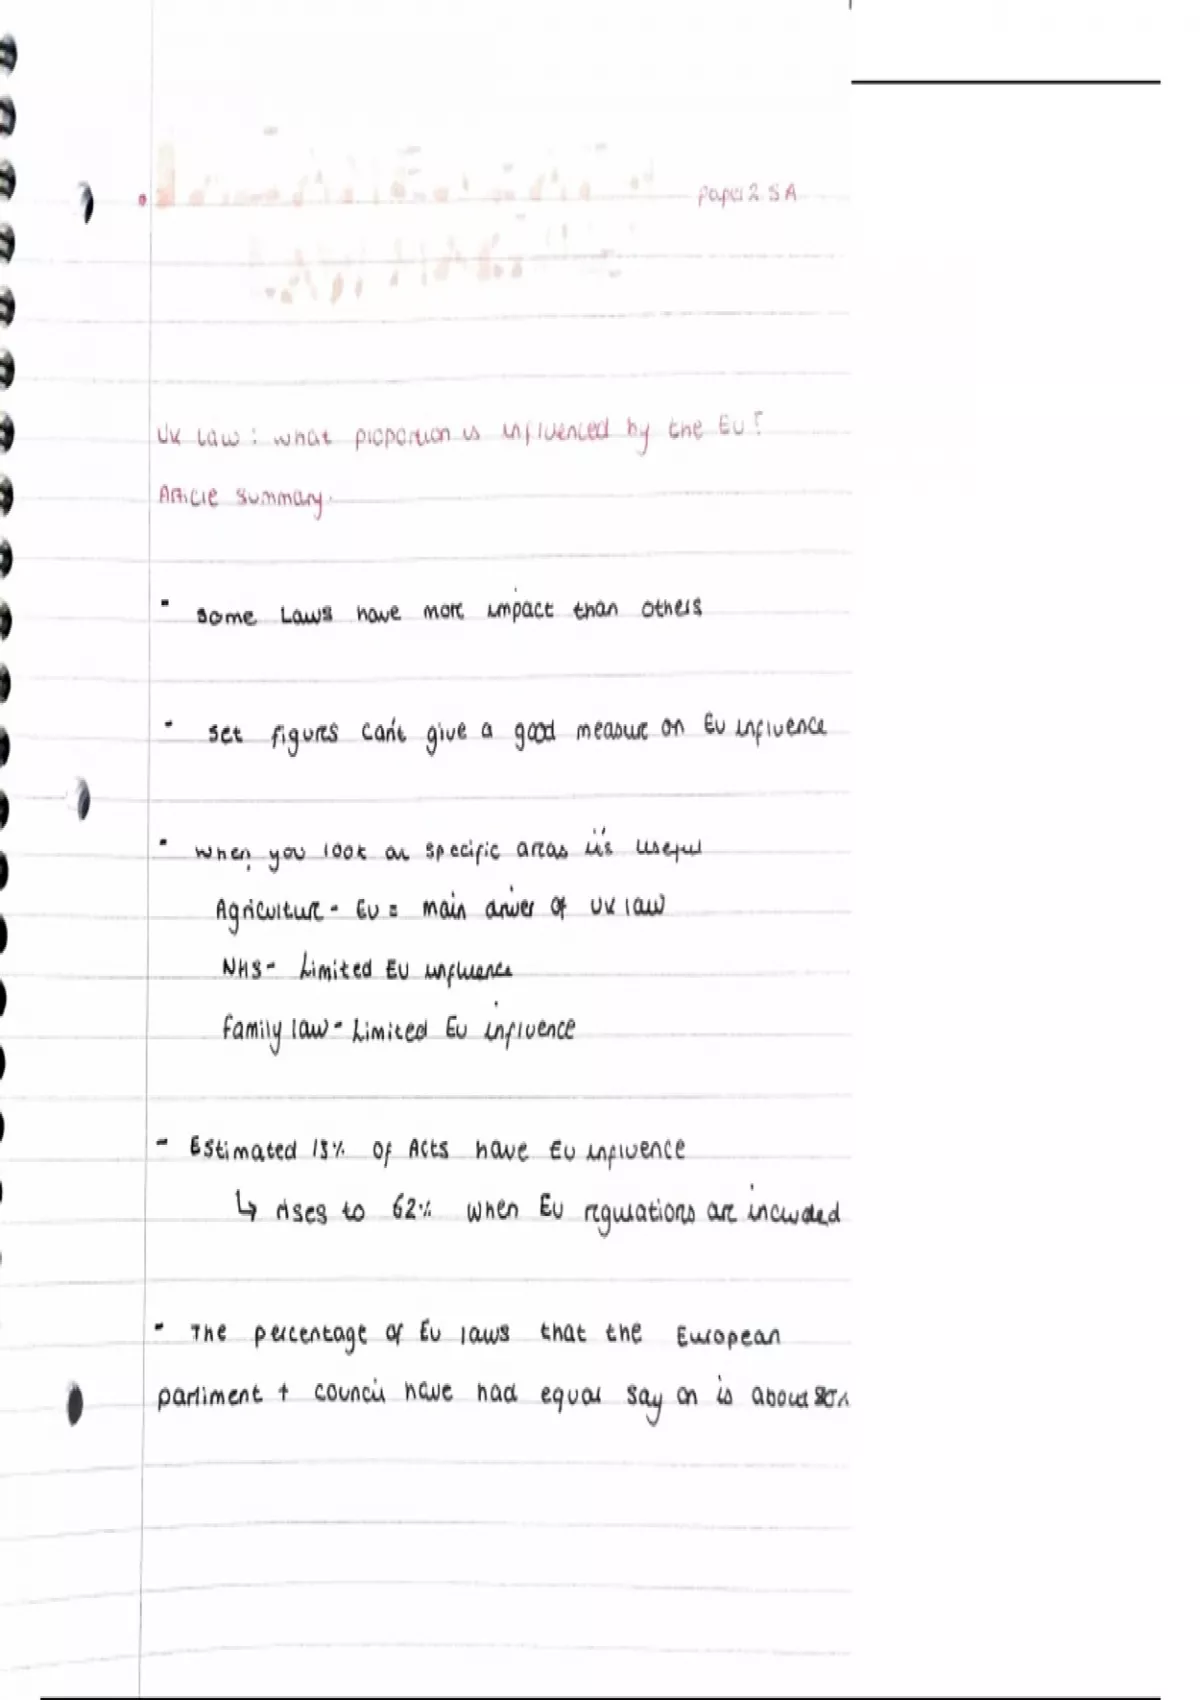 Paper 2 SA
UK Law : what proportion is influenced by the EU?
Article summary.
- Some Laws have more impact than others
- Set figures can't give a good measure on EU influence
- When you look at specific areas it's useful
Agriculture - EU = main driver of UK law
NHS - Limited EU influence
family law - Limited EU influence
- Estimated 13% of Acts have EU influence
↳ rises to 62% when EU regulations are included
- The percentage of EU laws that the European
parliment + council have had equal say on is about